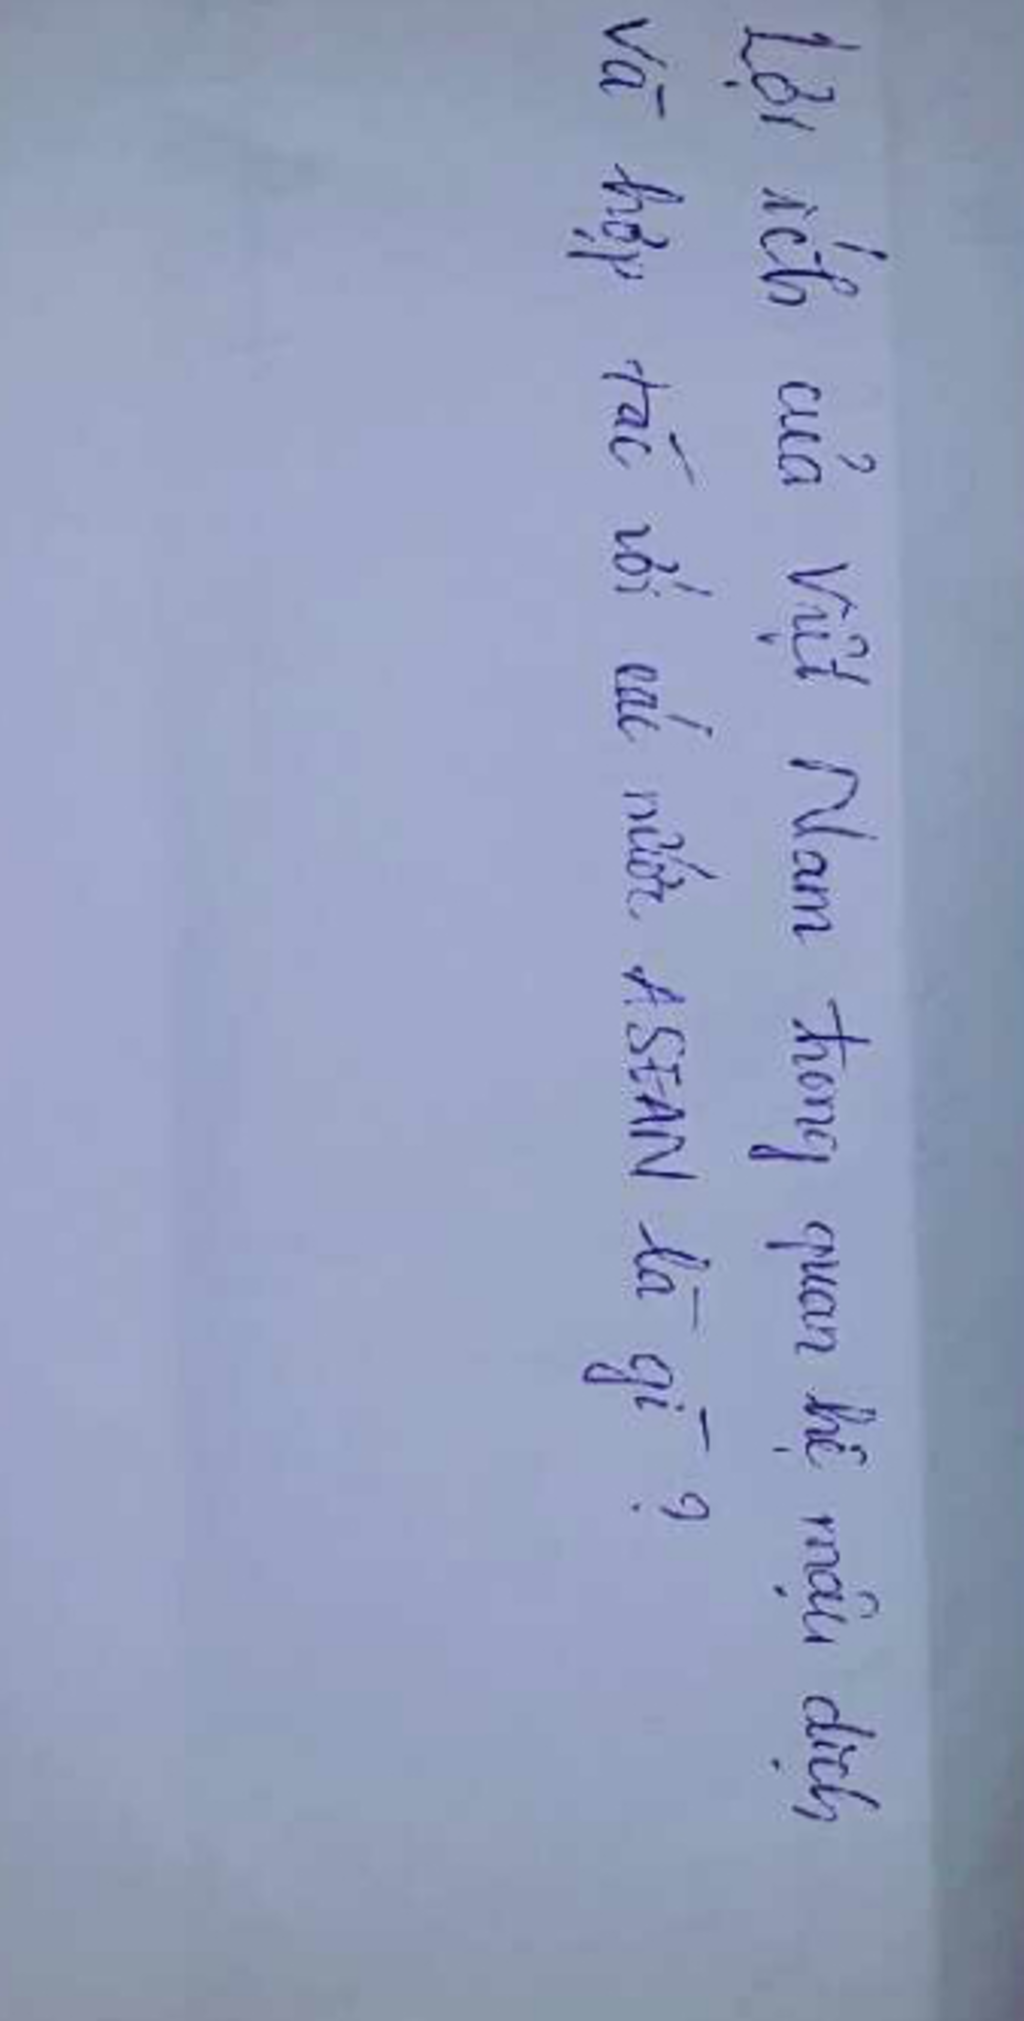 Lợi ích của Việt Nam trong quan hệ mậu dịch
và hợp tác với các nước ASEAN là gì ?